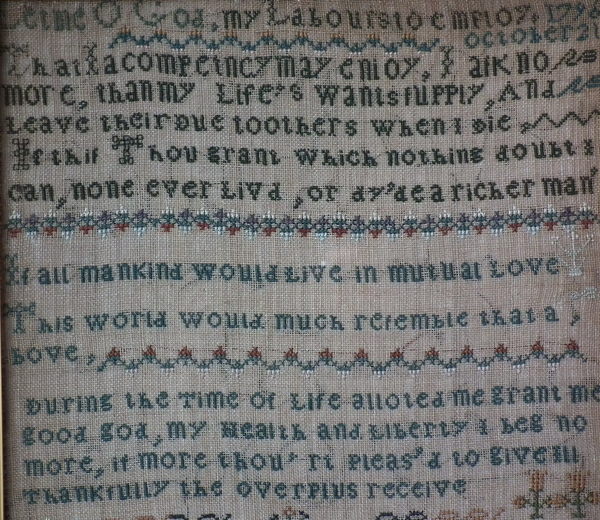 Let me O God, my Labours to employ, 1798
October 21
That I a competncy may enjoy, I ask no
more, than my Life's wants supply, And
Leave their Due to others when I Die,
If this Thou grant which nothing doubt I
can, none ever Livd, or dy'de a richer man
If all mankind would Live in mutual Love
This world would much resemble that a,
bove,
During the Time of Life alloted me grant me
good god, my Health and Liberty I beg no
more, if more thou'rt pleas'd to give Ill
Thankfully the overplus receive